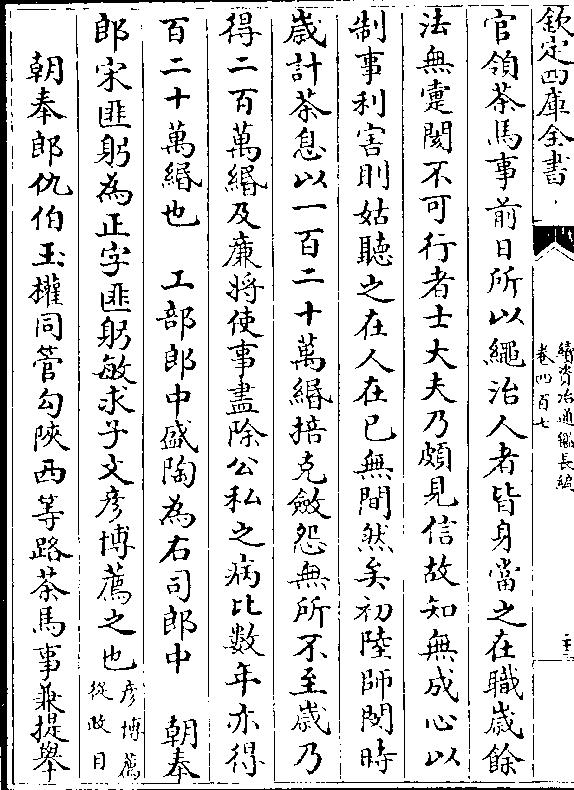 欽定四庫全書
續資治通鑑長編
卷四百七
官領茶馬事前日所以繩治人者皆身當之在職歲餘
法無寷闋不可行者士大夫乃頗見信故知無成心以
制事利害則姑聽之在人在已無間然矣初陸師閔時
歲計茶息以一百二十萬緡掊克斂怨無所不至歲乃
得二百萬緡及廉將使事盡除公私之病比數年亦得
百二十萬緡也 工部郎中盛陶為右司郎中 朝奉
郎宋匪躬為正字匪躬敏求子文彦博薦之也彦博薦從政目
朝奉郎仇伯玉權同管勾陜西等路茶馬事兼提舉